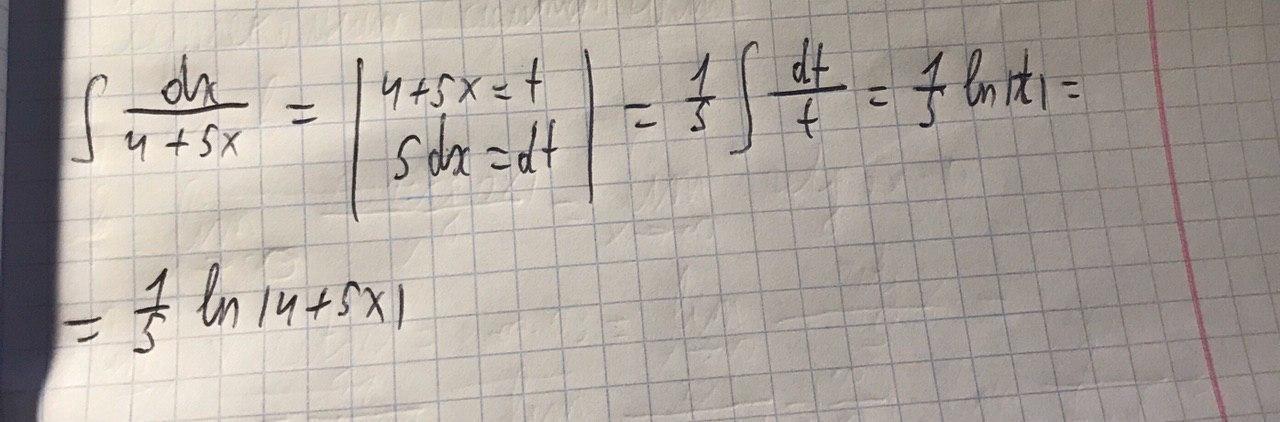 ∫ dx/(4+5x) = | 4+5x=t 5dx=dt | = 1/5 ∫ dt/t = 1/5 ln|t| =
= 1/5 ln|4+5x|